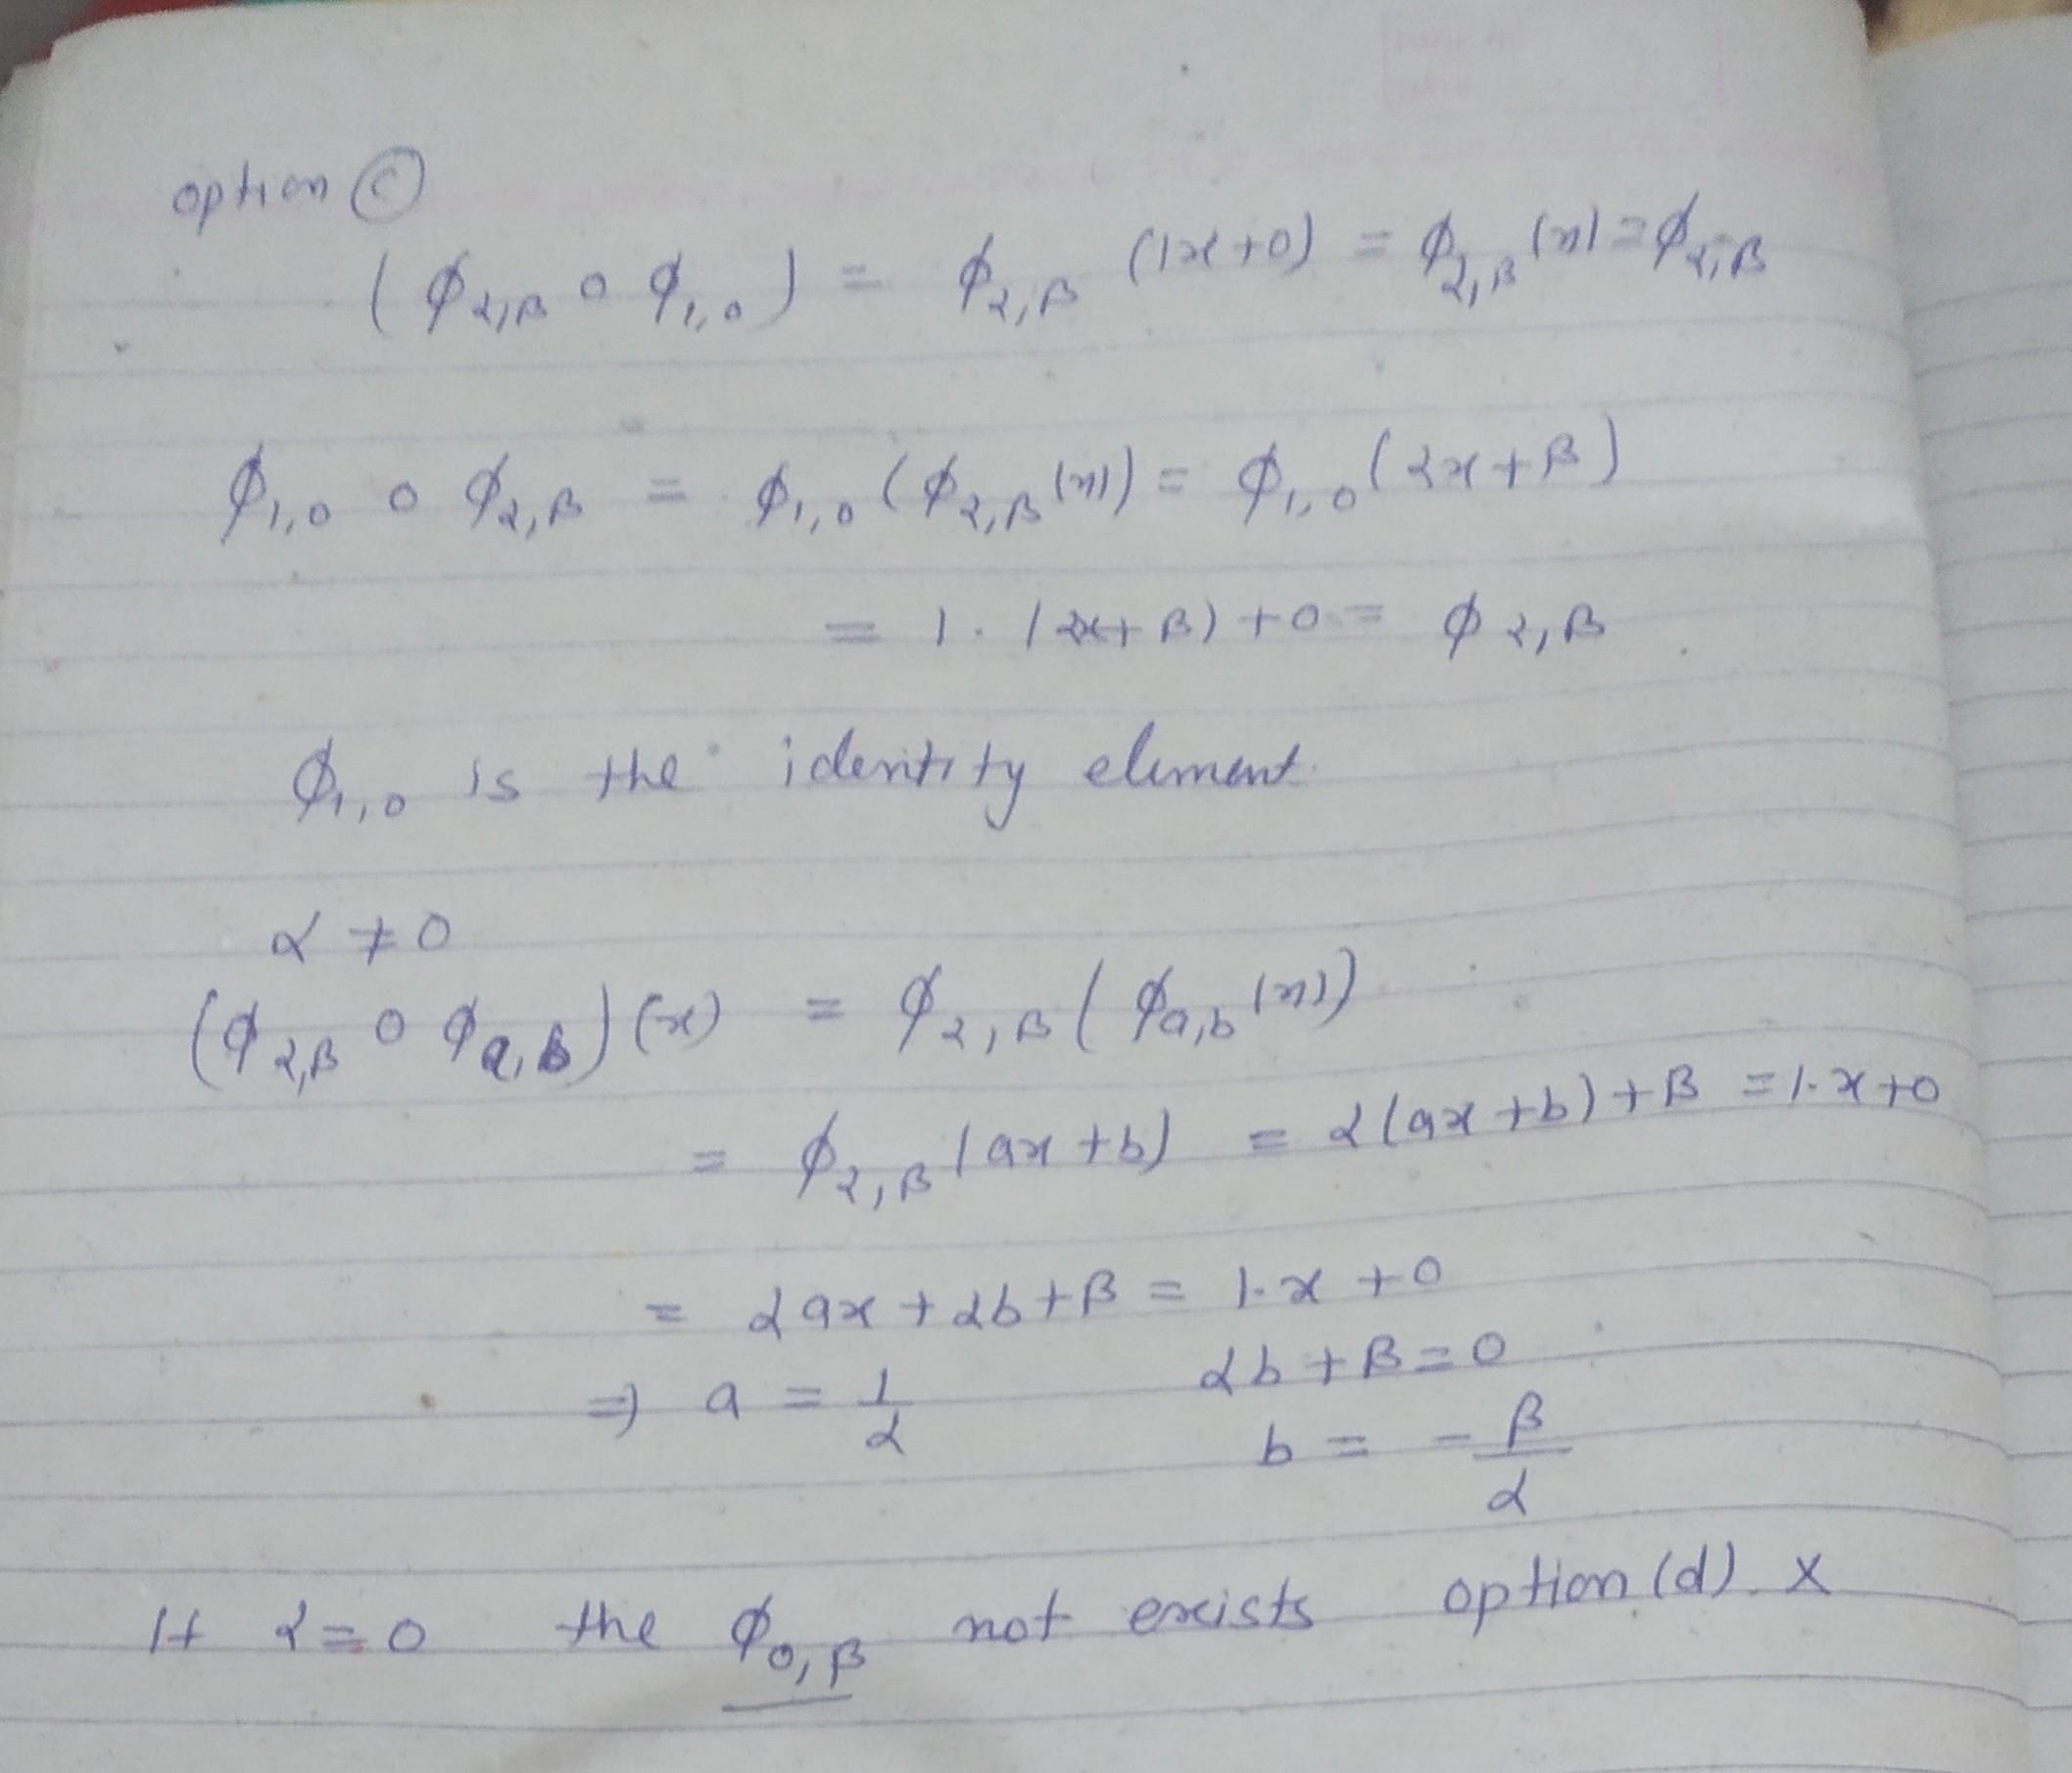 option ©
(ϕα,β o ϕ1,0) = ϕα,β (1x+0) = ϕα,β (x) = ϕα,β
ϕ1,0 o ϕα,β = ϕ1,0 (ϕα,β (x)) = ϕ1,0 (αx+β)
= 1. (αx+β) +0 = ϕα,β
ϕ1,0 is the identity element.
α ≠ 0
(ϕα,β o ϕa,b) (x) = ϕα,β (ϕa,b (x))
= ϕα,β (ax+b) = α(ax+b)+β = 1.x+0
= αax+αb+β = 1.x+0
⇒ a = 1/α αb+β=0
b = -β/α
If α=0 the ϕ0,β not exists option (d). x